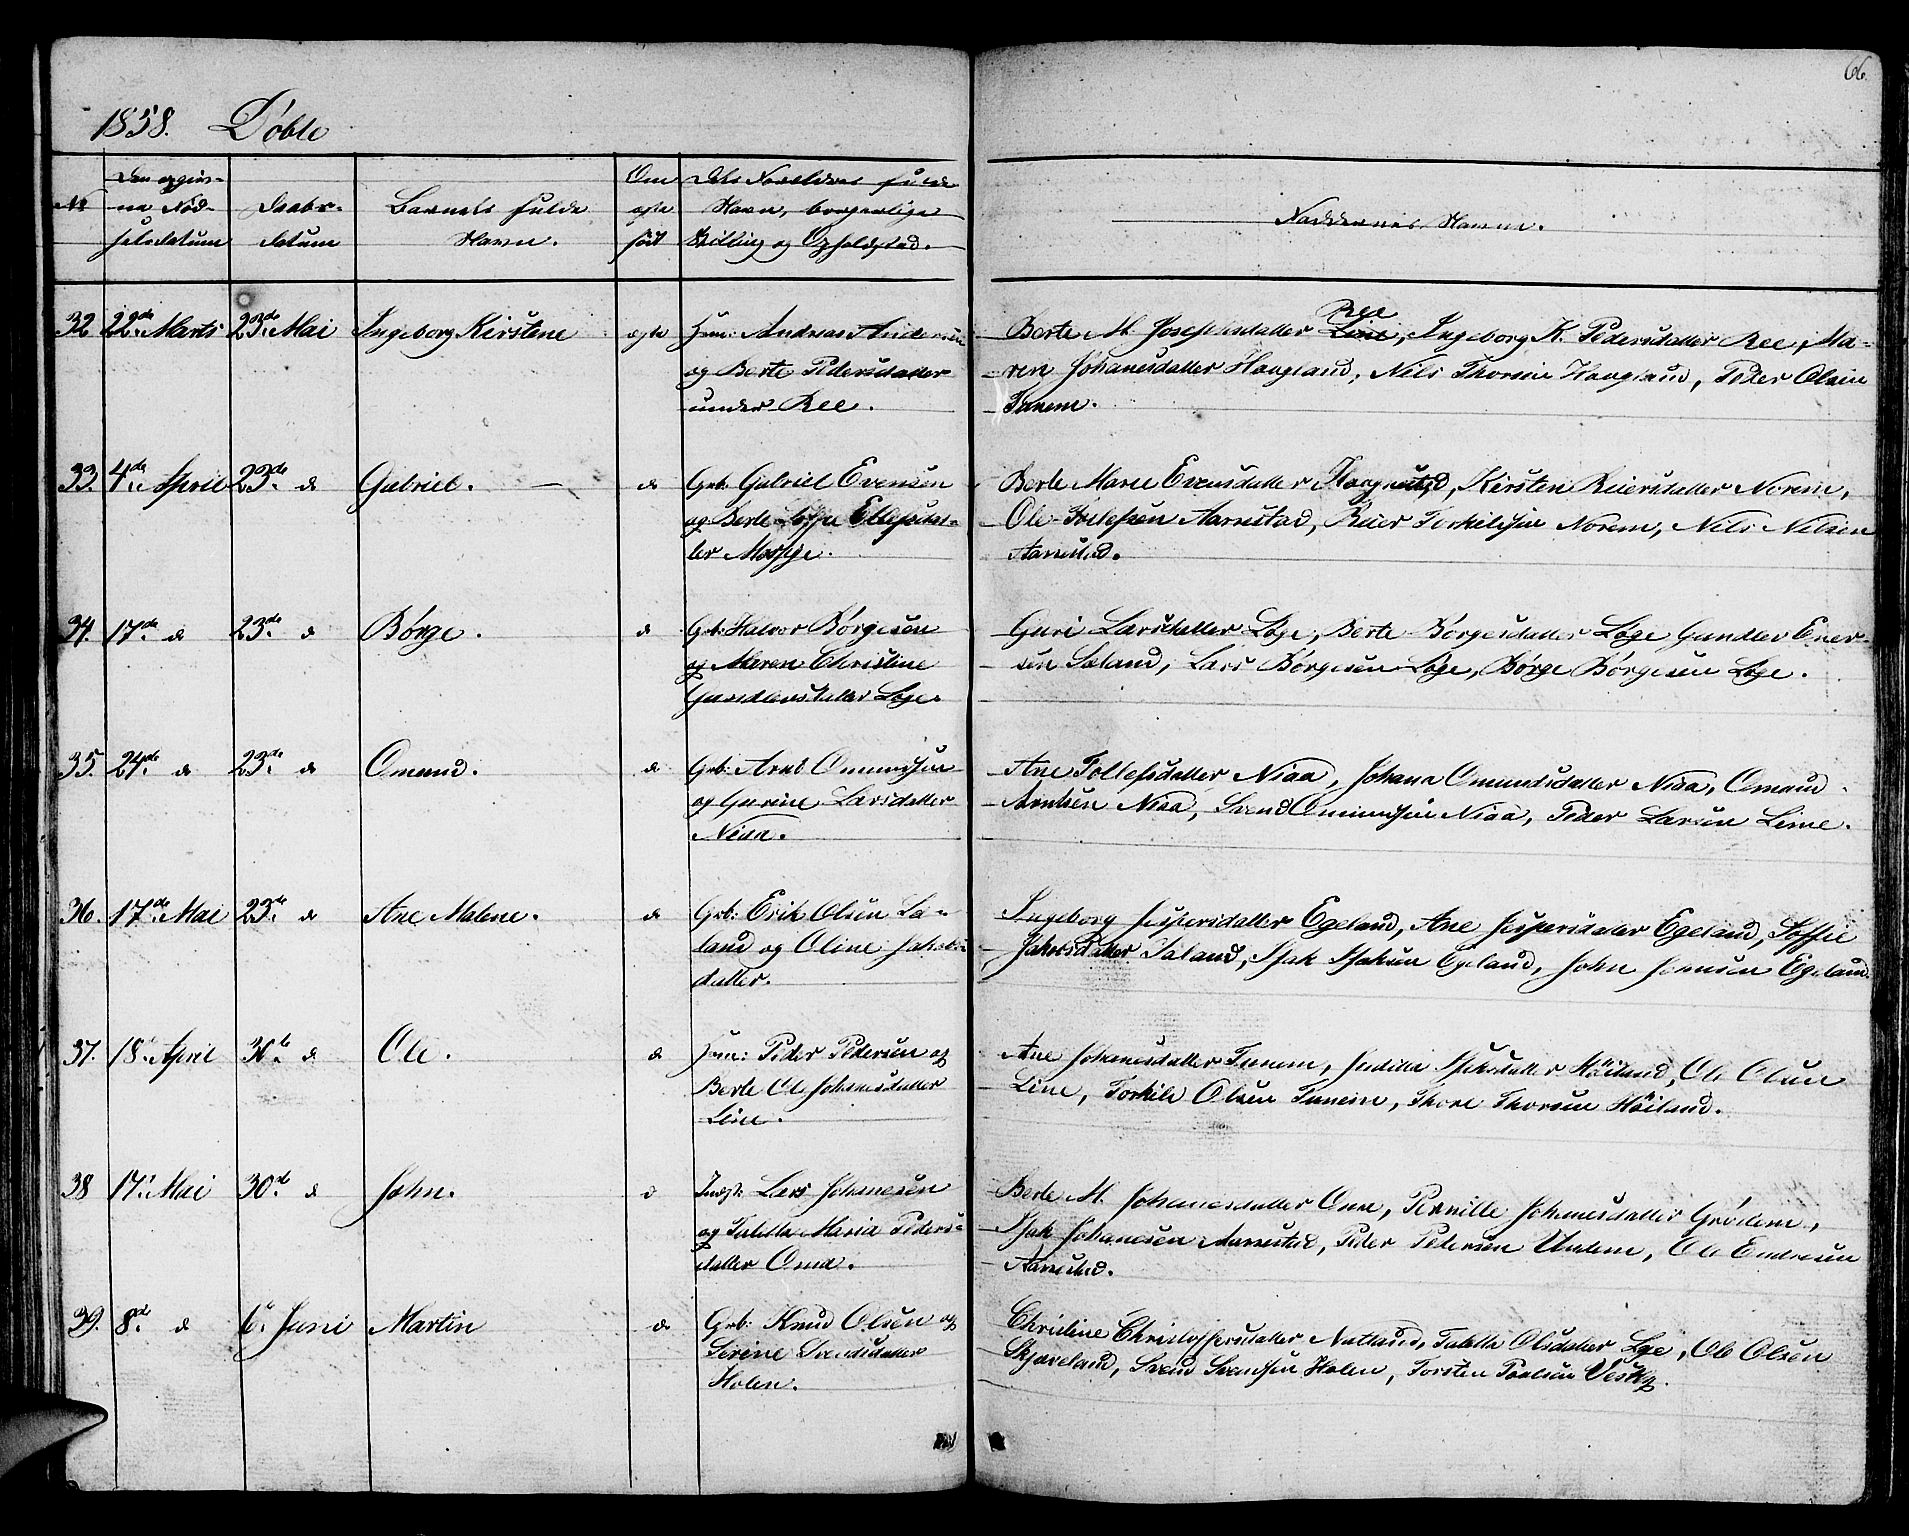 66.
1858. Döbte
No
Den opgivne Fødselsdatum
Daabsdatum
Barnets fulde Navn.
Om ægte født
Dets Forældres fulde Navn, borgerlige Stilling og Opholdsted.
Faddernes Navne.
32 22de Marts 23de Mai Ingeborg Kirstene ægte Huusm: Andreas Andersen
og Berte Pedersdatter
under Ree.
Berte M. Josephsdatter Line Ree, Ingeborg K. Pedersdatter Ree, Ma-
ren Johanesdatter Haagland, Nils Thorsen Haagland, Peder Olsen
Tunem.
33. 4de April 23de do Gabriel. — do Grb: Gabriel Evensen
og Berte Soffie Ellefsdat-
ter Mossige.
Berte Marie Evensdatter Haagnestad, Kirsten Reiersdatter Norem,
Ole Tollefsen Aarrestad, Reier Torkilsen Norem, Nils Nilsen
Aarrestad.
34. 17de do 23de do Börge. do Grb: Halvor Börgesen
og Maren Christine
Gundlersdatter Løge.
Guri Larsdatter Løge, Berte Börgesdatter Løge Gundler Ener-
sen Saland, Lars Börgesen Løge, Börge Börgesen Løge.
35. 24de do 23de do Omund. do Grb: Arnt Omundsen
og Gurine Larsdatter
Niaa.
Ane Tollefsdatter Niaa, Johana Omundsdatter Niaa, Omund
Arntsen Niaa, Svend Omundsen Niaa, Peder Larsen Lime.
36. 17de Mai 23de do Ane Malene. do Grb: Erik Olsen Sa-
land og Oline Jakobs-
datter.
Ingeborg Jespersdatter Egeland, Ane Jespersdatter Egeland, Soffie
Jakobsdatter Saland, Isak Isaksen Egeland, John Jonsen Egeland.
37. 18de April 30te do Ole. do Huusm: Peder Pedersen og
Berte Ol. Johanesdatter
Line.
Ane Johanesdatter Tunem, Isaksdatter Höiland, Ole Olsen
Line, Torkild Olsen Tunem, Thore Thorsen Höiland.
38 17de Mai 30te do John. do Inds: Lars Johanesen
og Talette Maria Peders-
datter Oma.
Berte M. Johanesdatter Oma, Pernille Johanesdatter Grödem,
Isak Johanesen Aarrestad, Peder Pedersen Undem, Ole Endresen
Aarrestad.
39. 8de do 6te Juni Martin do Grb: Knud Olsen og
Serine Svendsdatter
Holen.
Christine Christoffersdatter Netland, Talette Olsdatter Lye, Ole Olsen
Skjæveland, Svend Svendsen Holen, Torsten Poulsen Vestly.